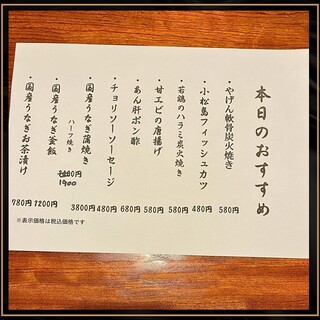 本日のおすすめ
・やげん軟骨炭火焼き 580円
・小松島フィッシュカツ 480円
・若鶏のハラミ炭火焼き 580円
・甘エビの唐揚げ 580円
・あん肝ポン酢 680円
・チョリソーソーセージ 480円
・国産うなぎ蒲焼き 3800円
ハーフ焼き 1900
・国産うなぎ釜飯 1200円
・国産うなぎお茶漬け 780円
※表示価格は税込価格です